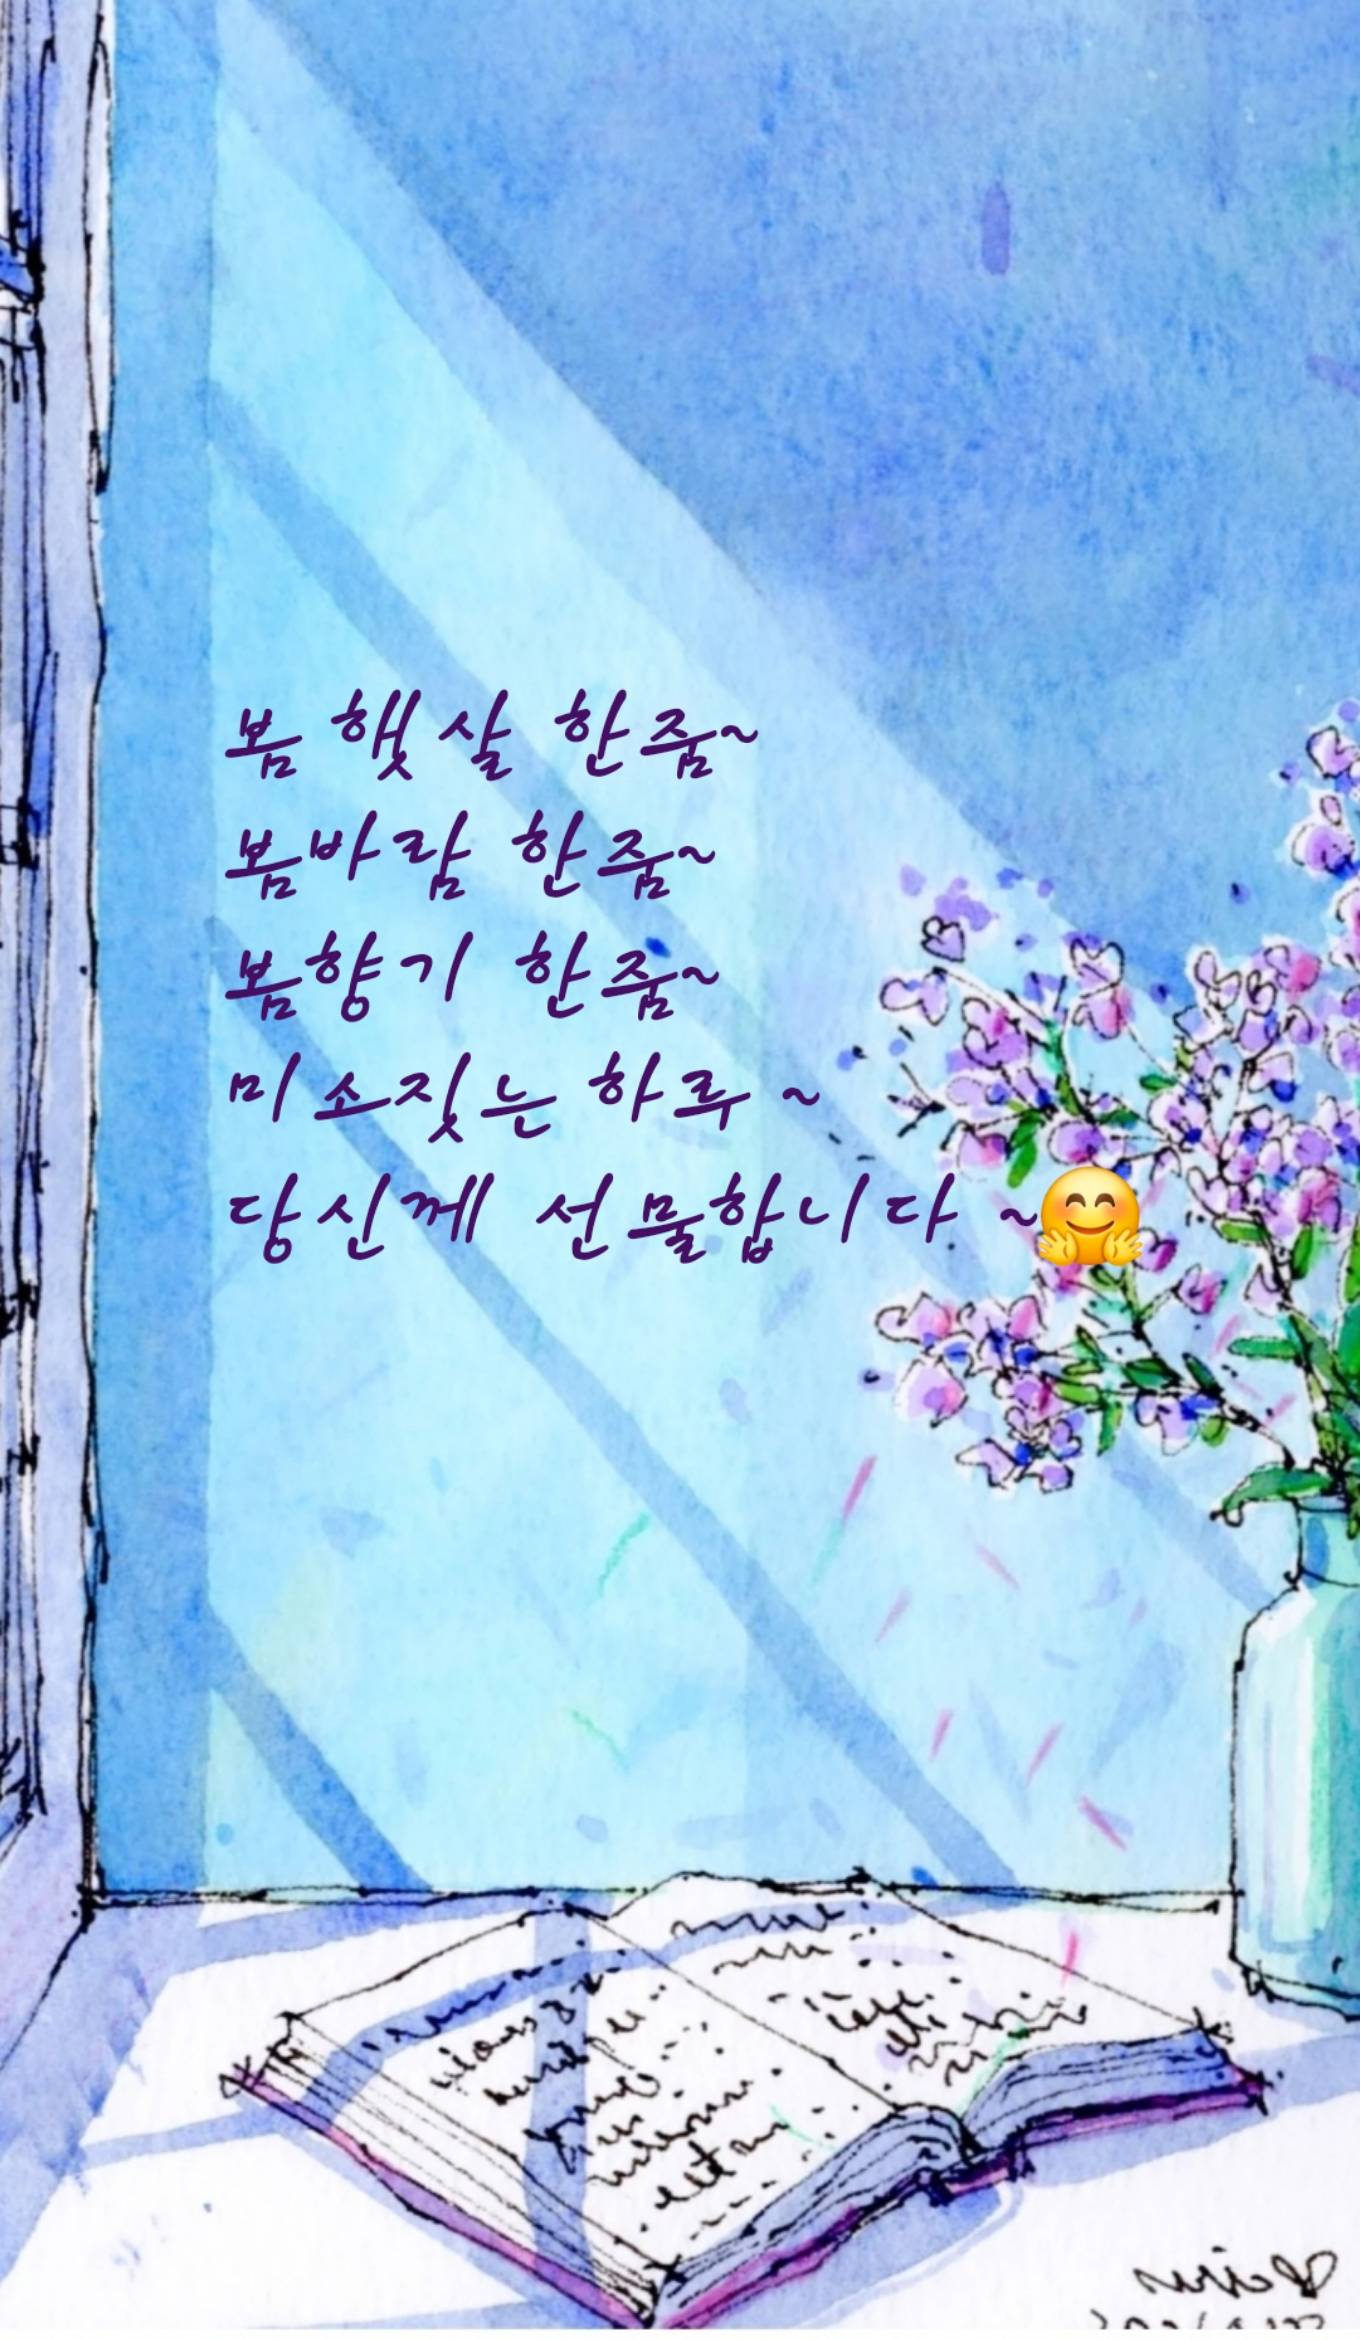 봄 햇살 한줌~
봄바람 한줌~
봄향기 한줌~
미소짓는 하루 ~
당신께 선물합니다 ~🤗